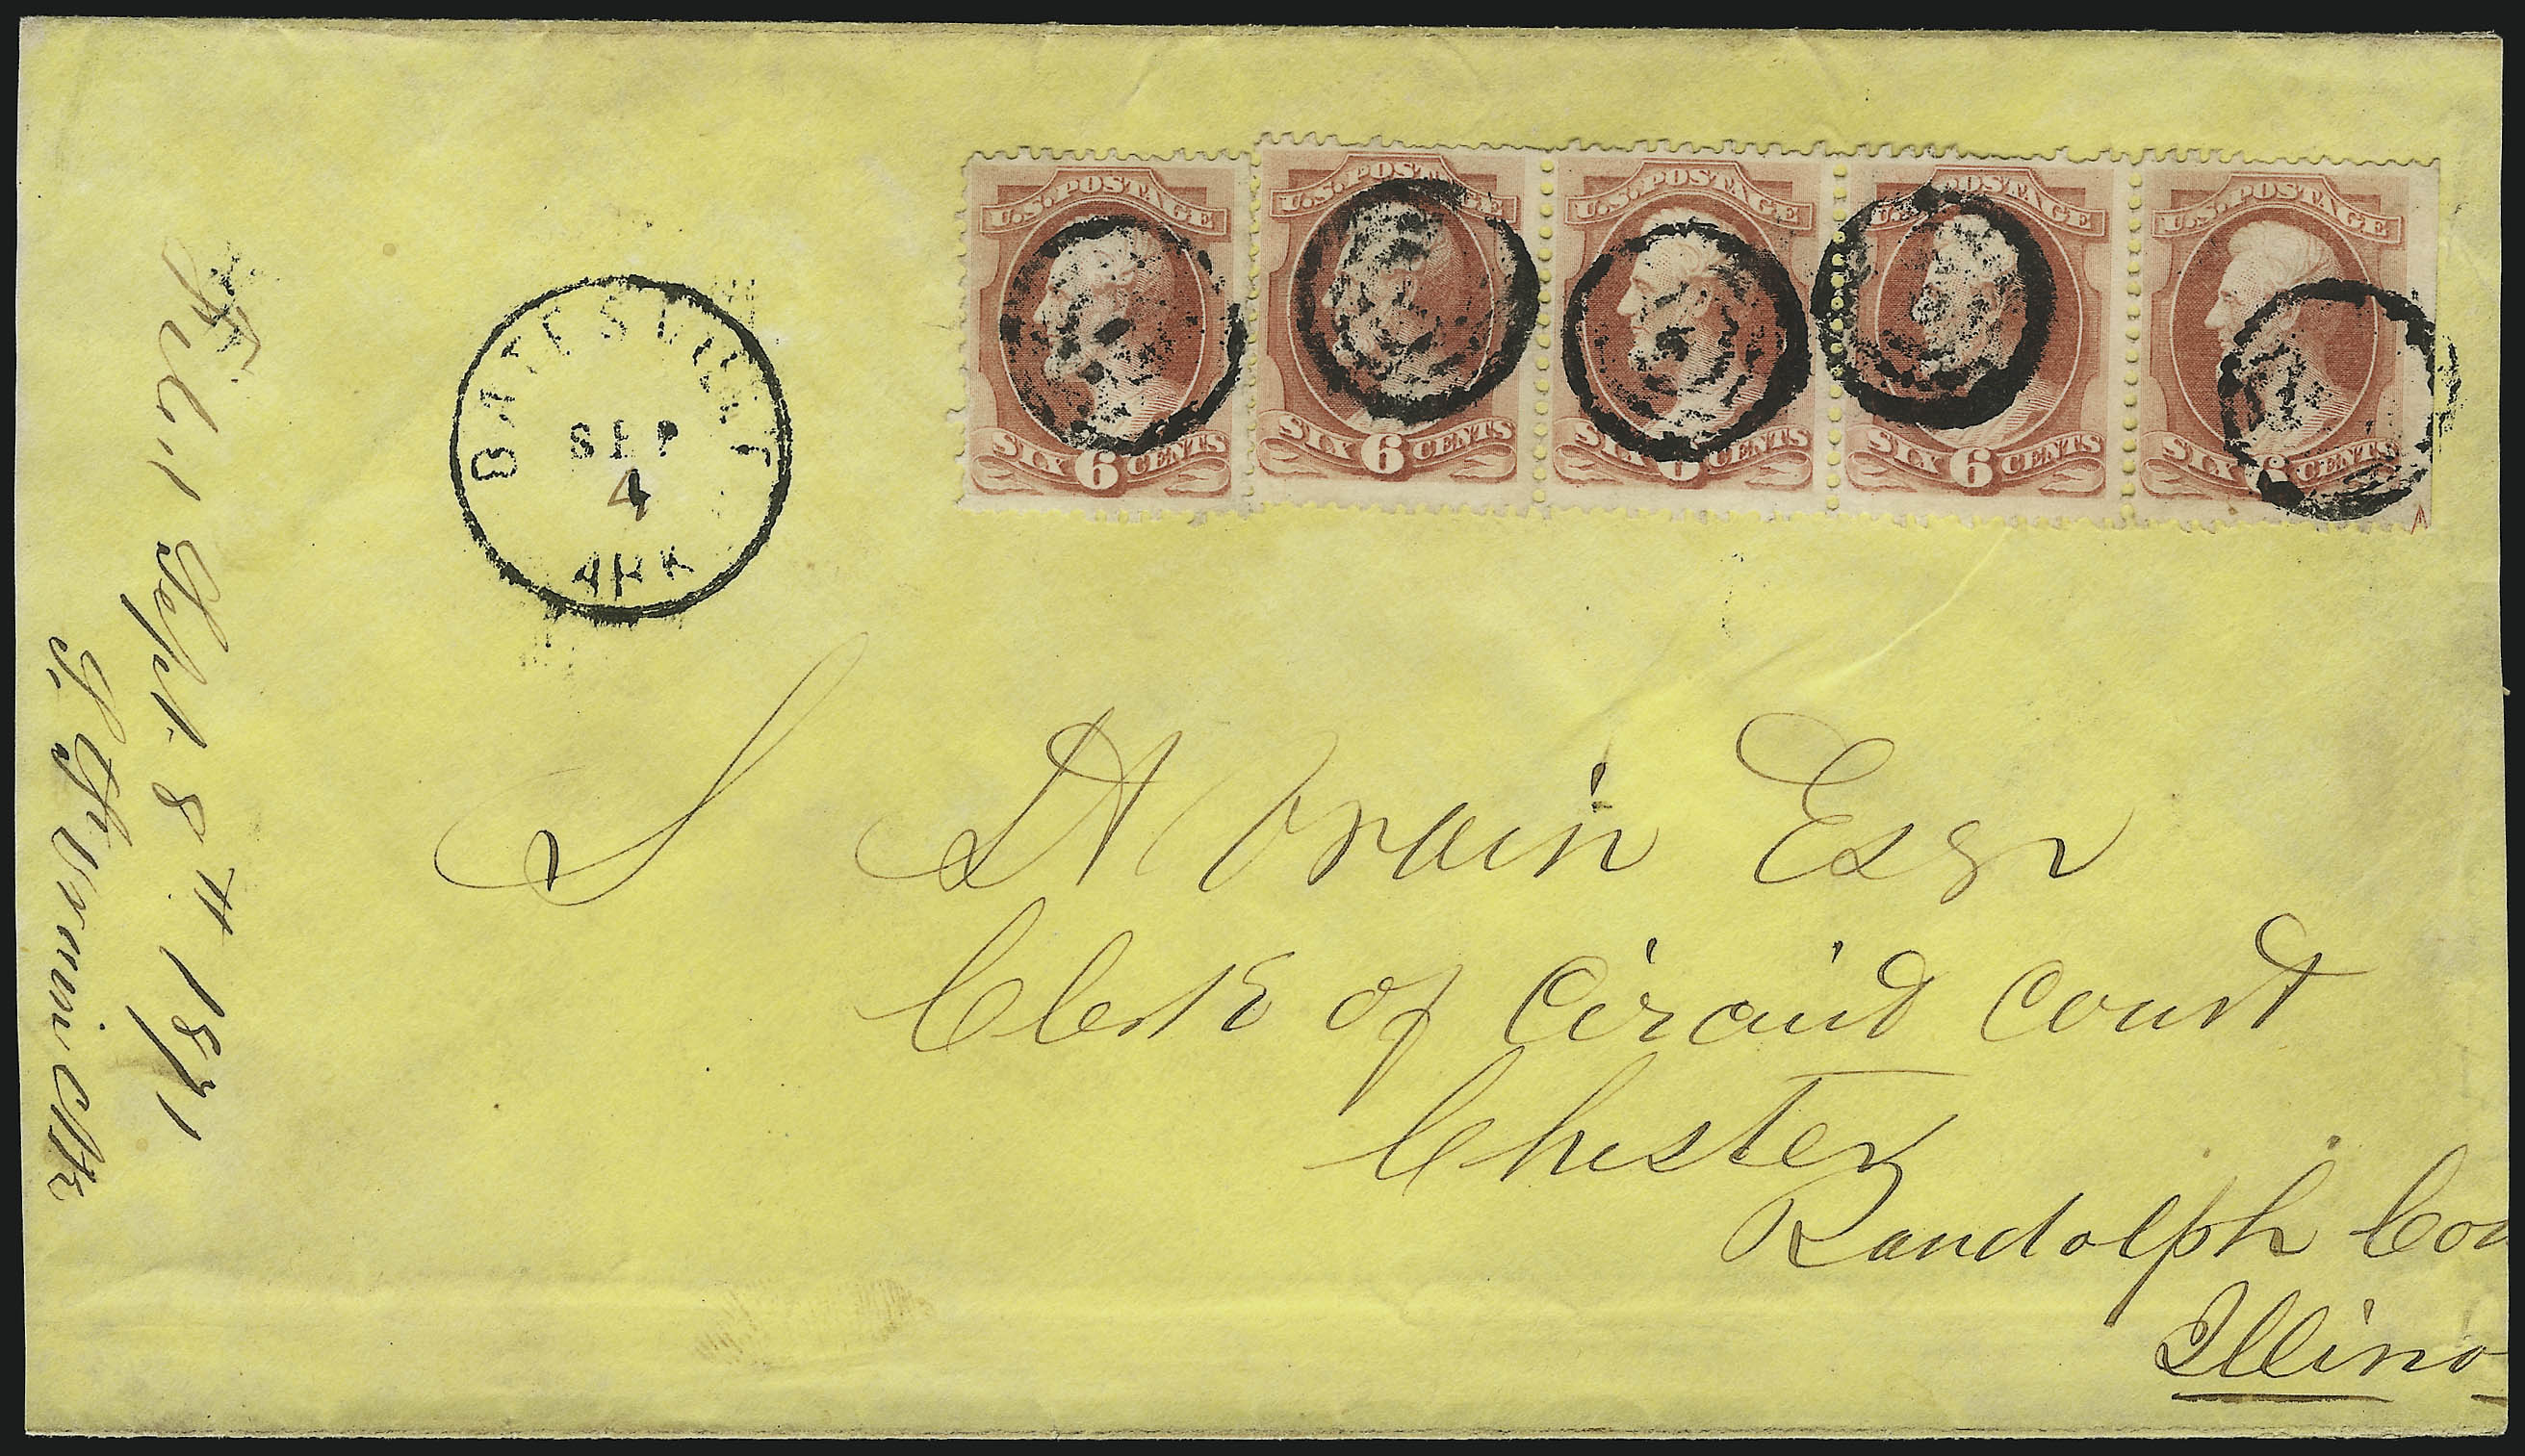 U.S. POSTAGE
SIX 6 CENTS
U.S. POSTAGE
SIX 6 CENTS
U.S. POSTAGE
SIX 6 CENTS
U.S. POSTAGE
SIX 6 CENTS
U.S. POSTAGE
SIX 6 CENTS
BATESVILLE
SEP
4
ARK
Filed Sept. 8th 1871
Clk
S St Vrain Esqr
Clerk of Circuit Court
Chester
Randolph Cou
Illino